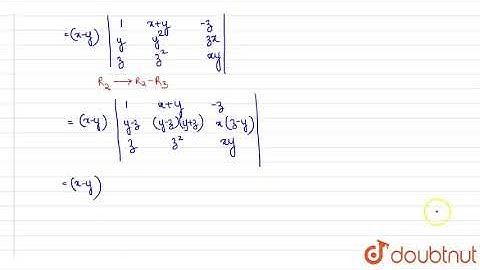 =(x-y) | 1 x+y -z |
| y y² zx |
| z z² xy |
R₂ → R₂-R₃
= (x-y) | 1 x+y -z |
| y-z (y-z)(y+z) x(z-y) |
| z z² xy |
= (x-y)
doubtnut